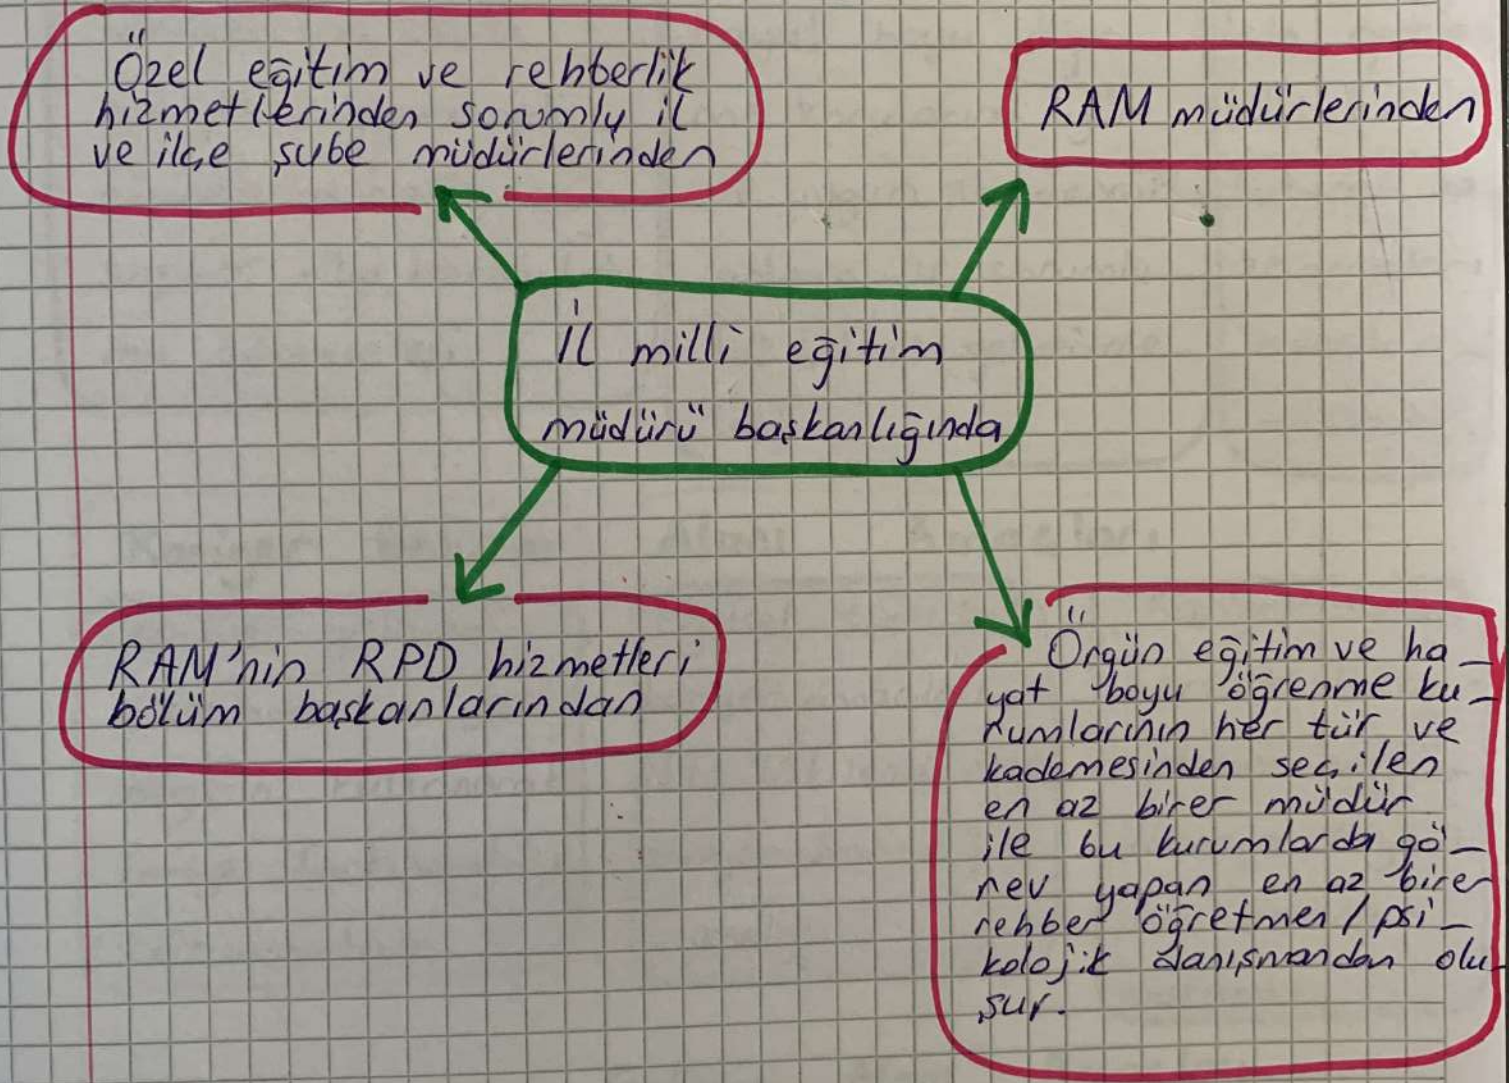 Özel eğitim ve rehberlik
hizmetlerinden sorumlu il
ve ilçe şube müdürlerinden
RAM müdürlerinden
İl milli eğitim
müdürü başkanlığında
RAM'nin RPD hizmetleri
bölüm başkanlarından
Örgün eğitim ve ha-
yat boyu öğrenme ku-
rumlarının her tür ve
kademesinden seçilen
en az birer müdür
ile bu kurumlarda gö-
rev yapan en az birer
rehber öğretmen/psi-
kolojik danışmandan olu-
şur.